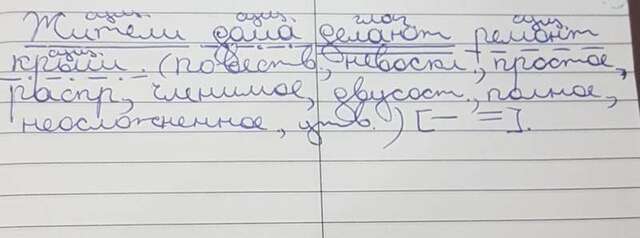 сущ. сущ. глаг сущ.
Жители дома делают ремонт
сущ.
крыши. (повеств, невоскл., простое,
распр, членимое, двусост., полное,
неосложненное, утв.) [— =].